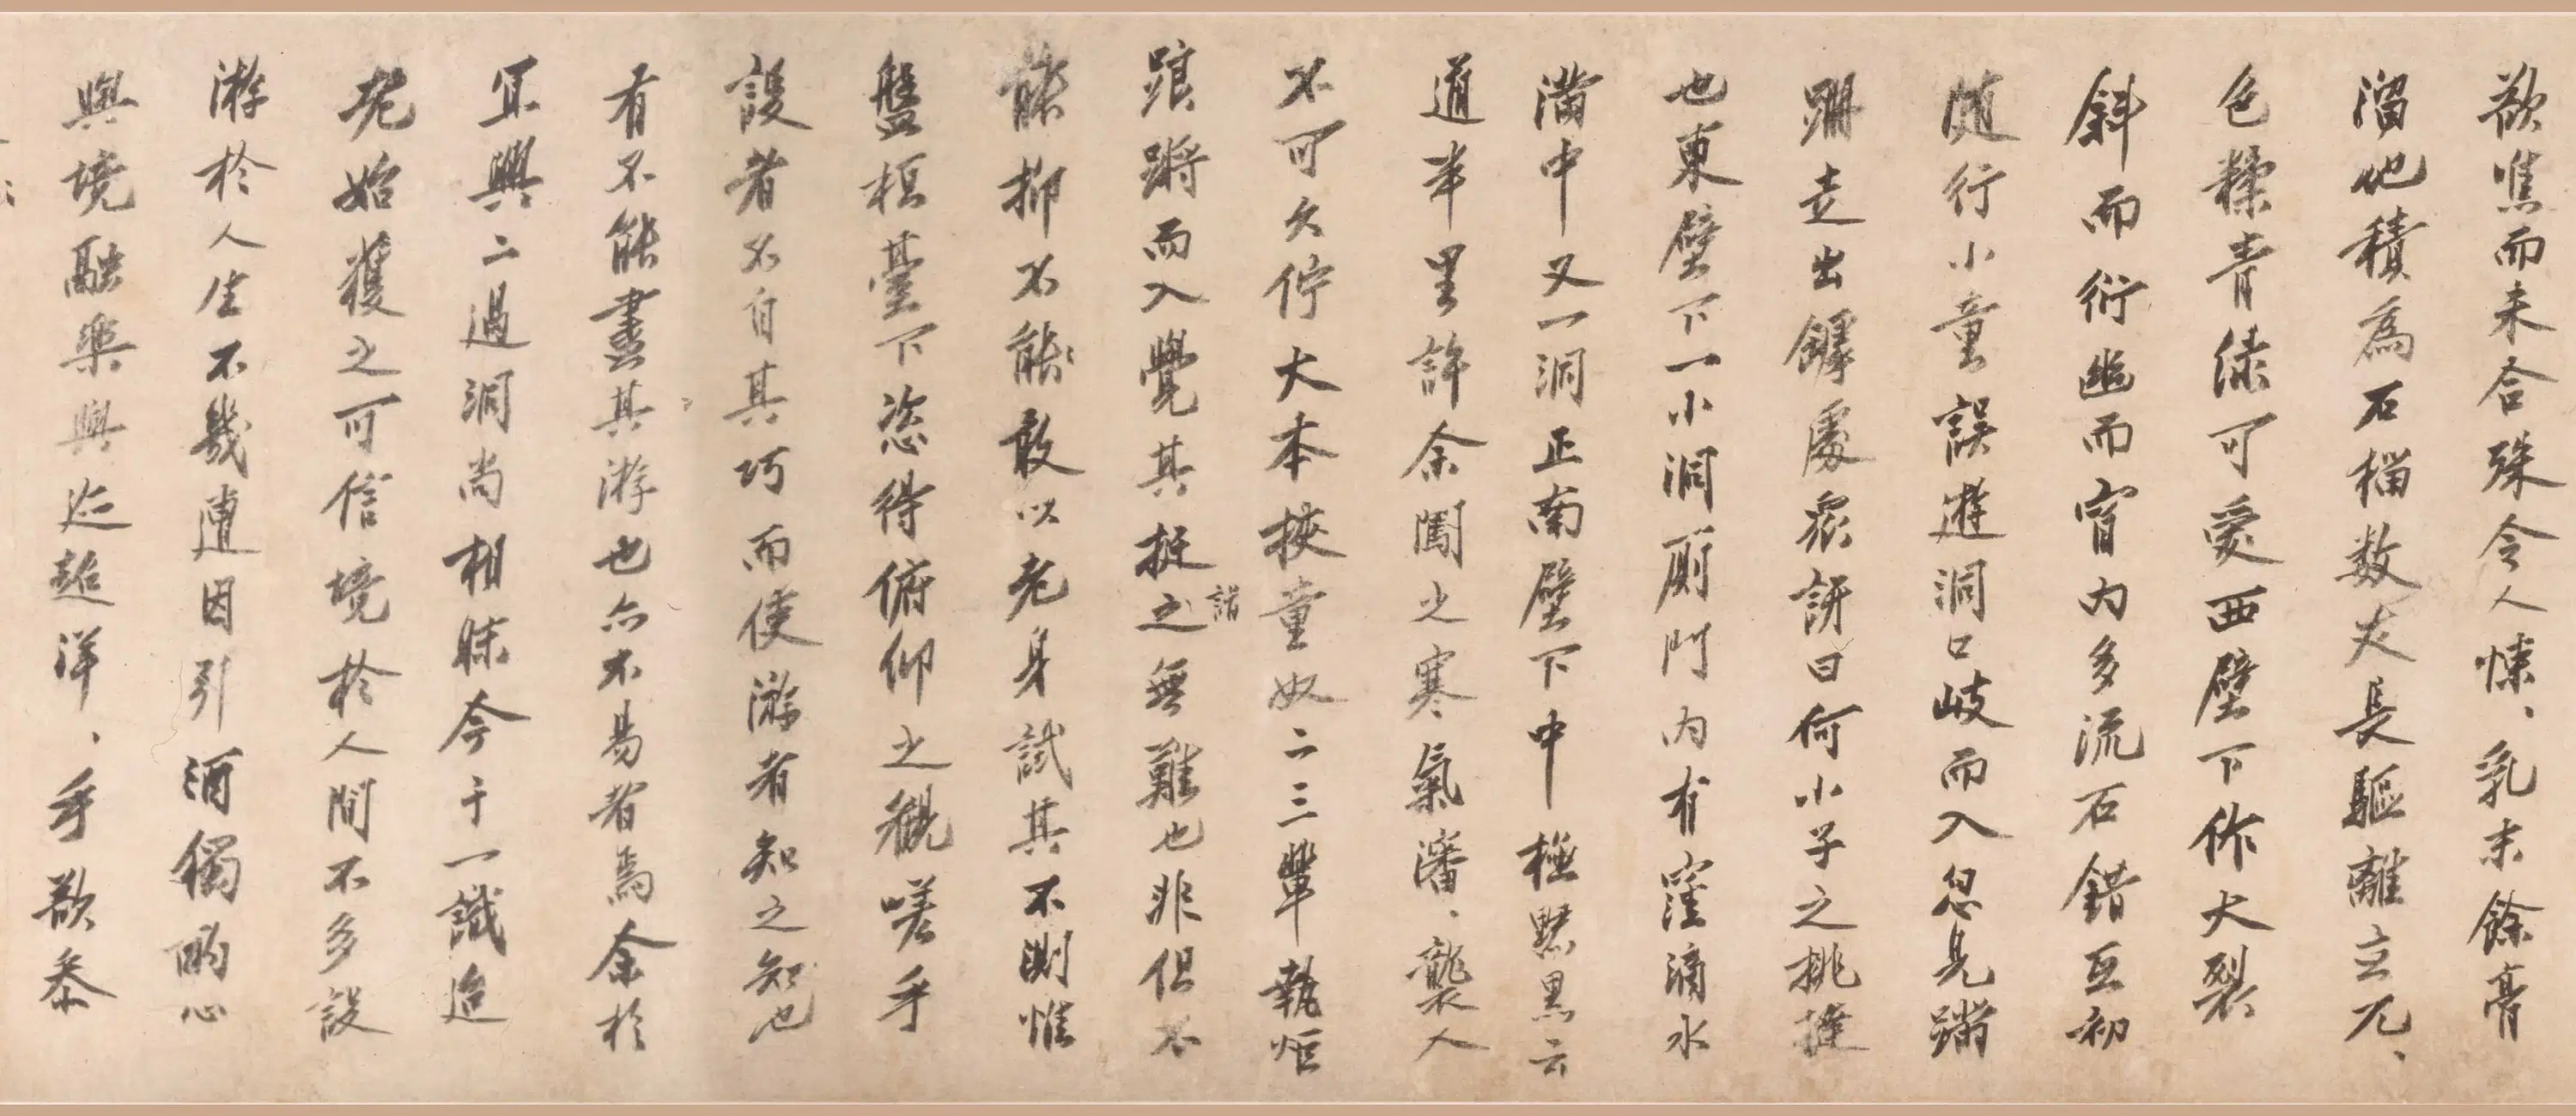 欲噍而未合殊令人悚、乳末餘膏
溜地積為石榴数丈長軀離立兀、
色糅青綠可愛西壁下作大裂
斜而衍幽而窅内多流石錯互初
随行小童誤遊洞口歧而入忽見蹒
跚走出罅處衆訝曰何小子之挑撻
也東壁下一小洞廁門内有窪滴水
滿中又一洞正南壁下中極黟黒云
道半里許余闖之寒氣瀋、襲人
不可久佇大本挾童奴二三輩執炬
踉蹡而入覺其挺之無難也非但不
諸
能抑不能敢以老身試其不測惟
盤桓臺下恣待俯仰之觀嗟乎
設者不自其巧而使游者知之知也
有不能盡其游也亦不易者焉余於
宜興二過洞尚相昧今于一識迨
老始獲之可信境於人間不多設
游於人生不幾遭因引酒獨酌心
與境融樂與迄超洋、乎欲忝